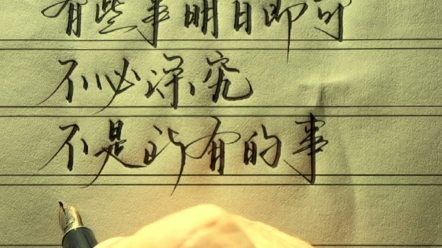 有些事明白即可
不必深究
不是所有的事